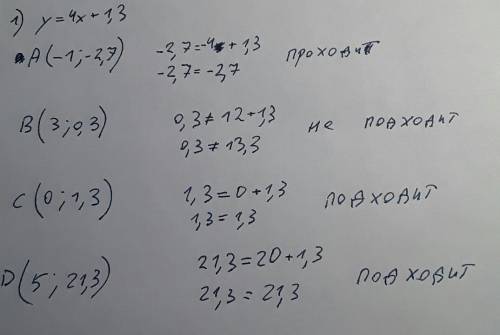 1) y = 4x + 1,3
A(-1; -2,7) -2,7 = -4 + 1,3 проходит
-2,7 = -2,7
B(3; 0,3) 0,3 ≠ 12 + 1,3 не подходит
0,3 ≠ 13,3
C(0; 1,3) 1,3 = 0 + 1,3 подходит
1,3 = 1,3
D(5; 21,3) 21,3 = 20 + 1,3 подходит
21,3 = 21,3